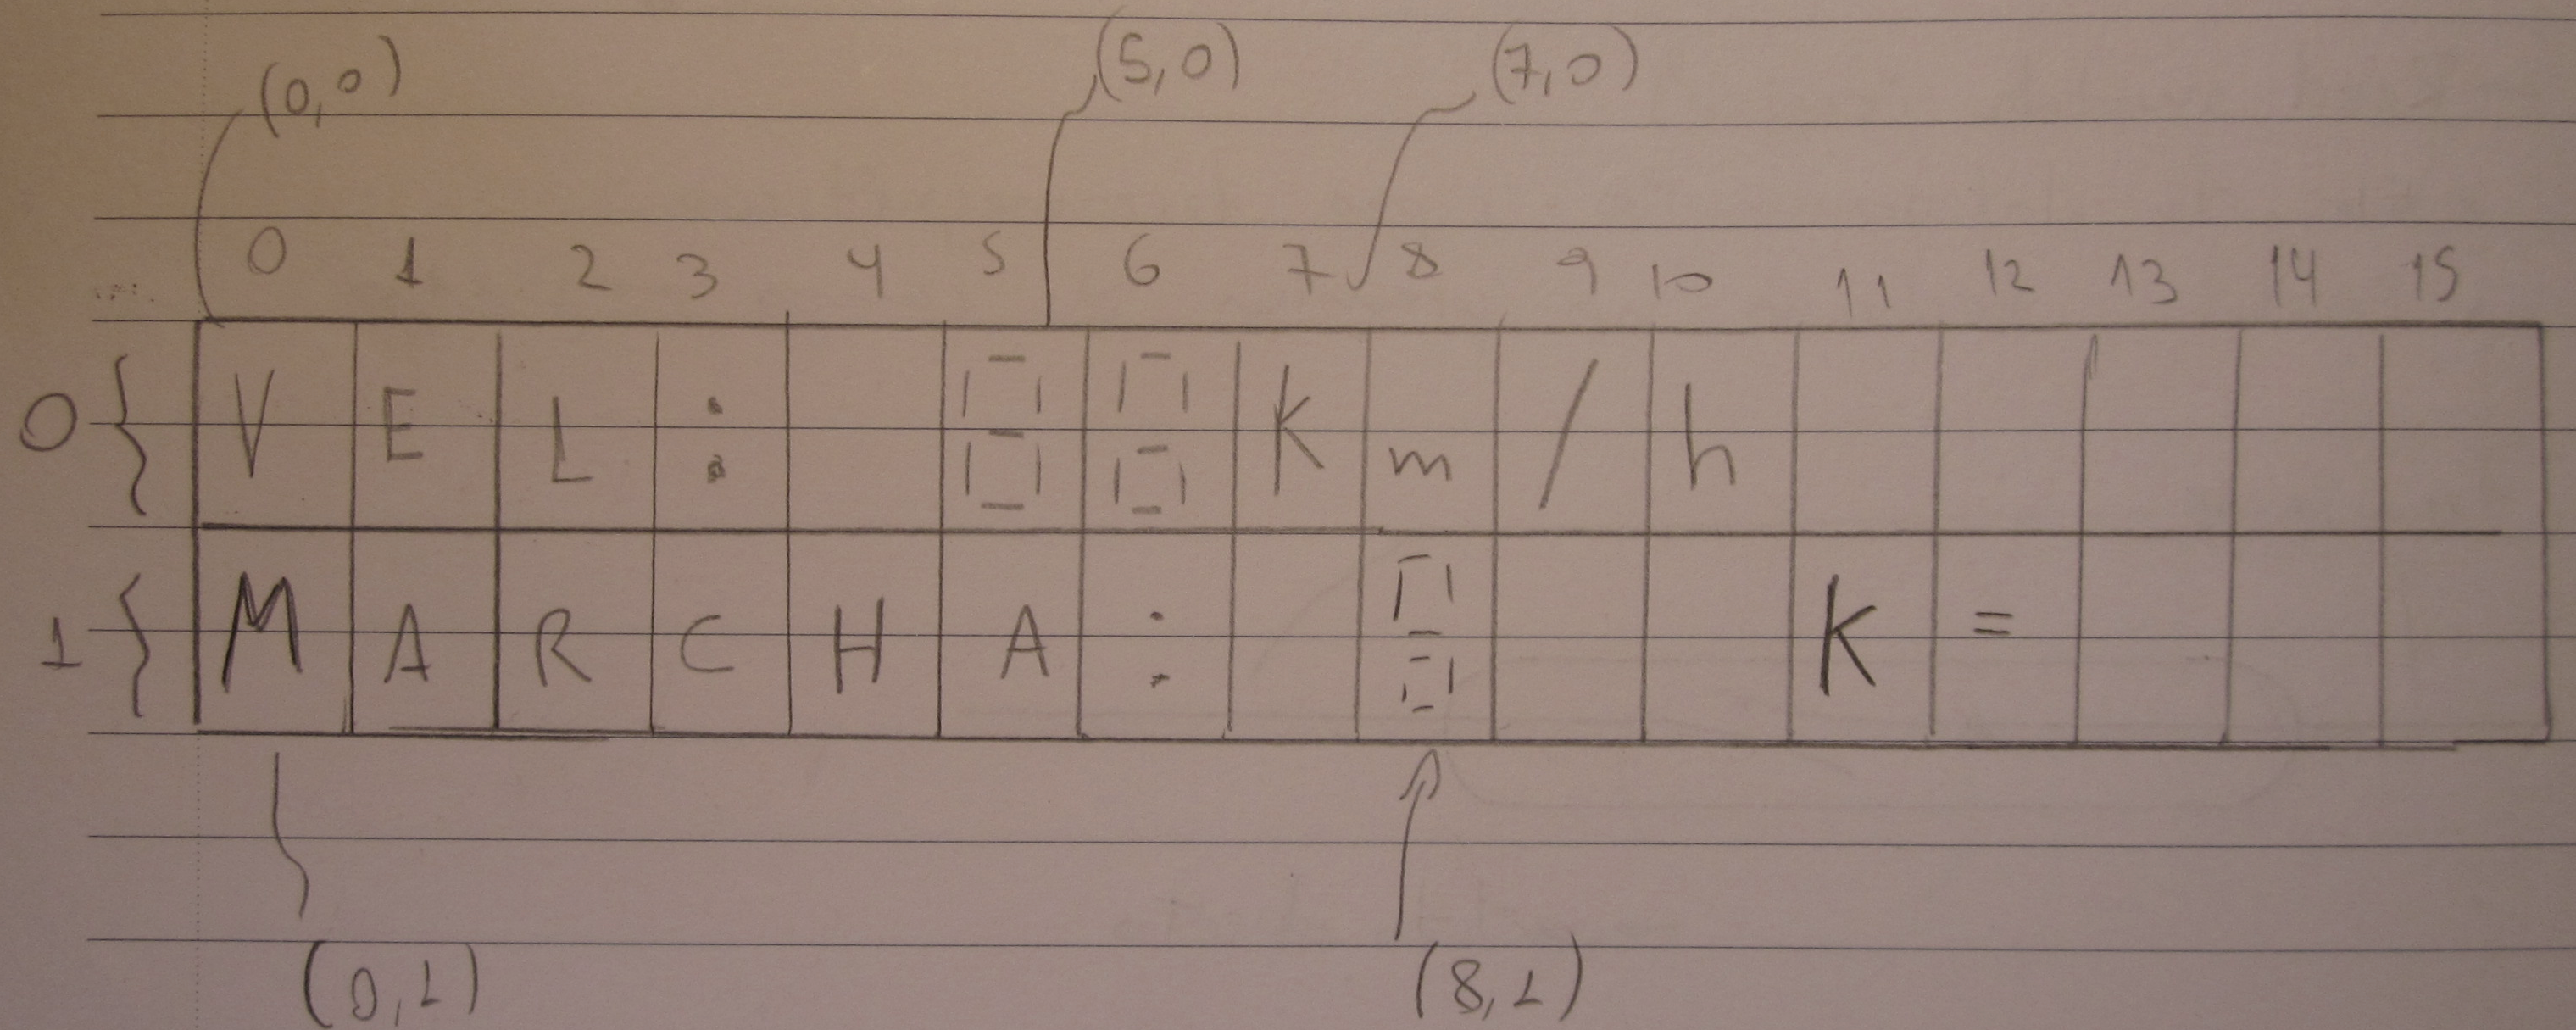 (0,0) (5,0) (7,0)
0 1 2 3 4 5 6 7 8 9 10 11 12 13 14 15
0 { V E L : 8 8 K m / h
1 { M A R C H A : 8 K =
(0,1) (8,1)